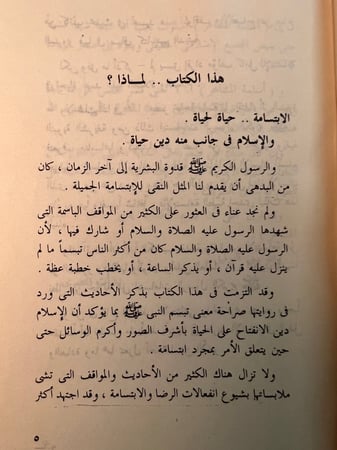 هذا الكتاب .. لمــاذا ؟
الابتسامة .. حياة لحياة .
والإسلام فى جانب منه دين حياة .
والرسول الكريم ﷺ قدوة البشرية إلى آخر الزمان ، كان
من البدهى أن يقدم لنا المثل النقى للإبتسامة الجميلة .
ولم نجد عناء فى العثور على الكثير من المواقف الباسمة التى
شهدها الرسول عليه الصلاة والسلام أو شارك فيها ، لأن
الرسول عليه الصلاة والسلام كان من أكثر الناس تبسماً ما لم
ينزل عليه قرآن ، أو يذكر الساعة ، أو يخطب خطبة عظة .
وقد التزمت فى هذا الكتاب بذكر الأحاديث التى ورد
فى روايتها صراحة معنى تبسم النبى ﷺ بما يؤكد أن الإسلام
دين الانفتاح على الحياة بأشرف الصور وأكرم الوسائل حتى
حين يتعلق الأمر بمجرد ابتسامة .
ولا تزال هناك الكثير من الأحاديث والمواقف التى تشى
ملابساتها بشيوع انفعالات الرضا والابتسامة ، وقد اجتهد أكثر
٥